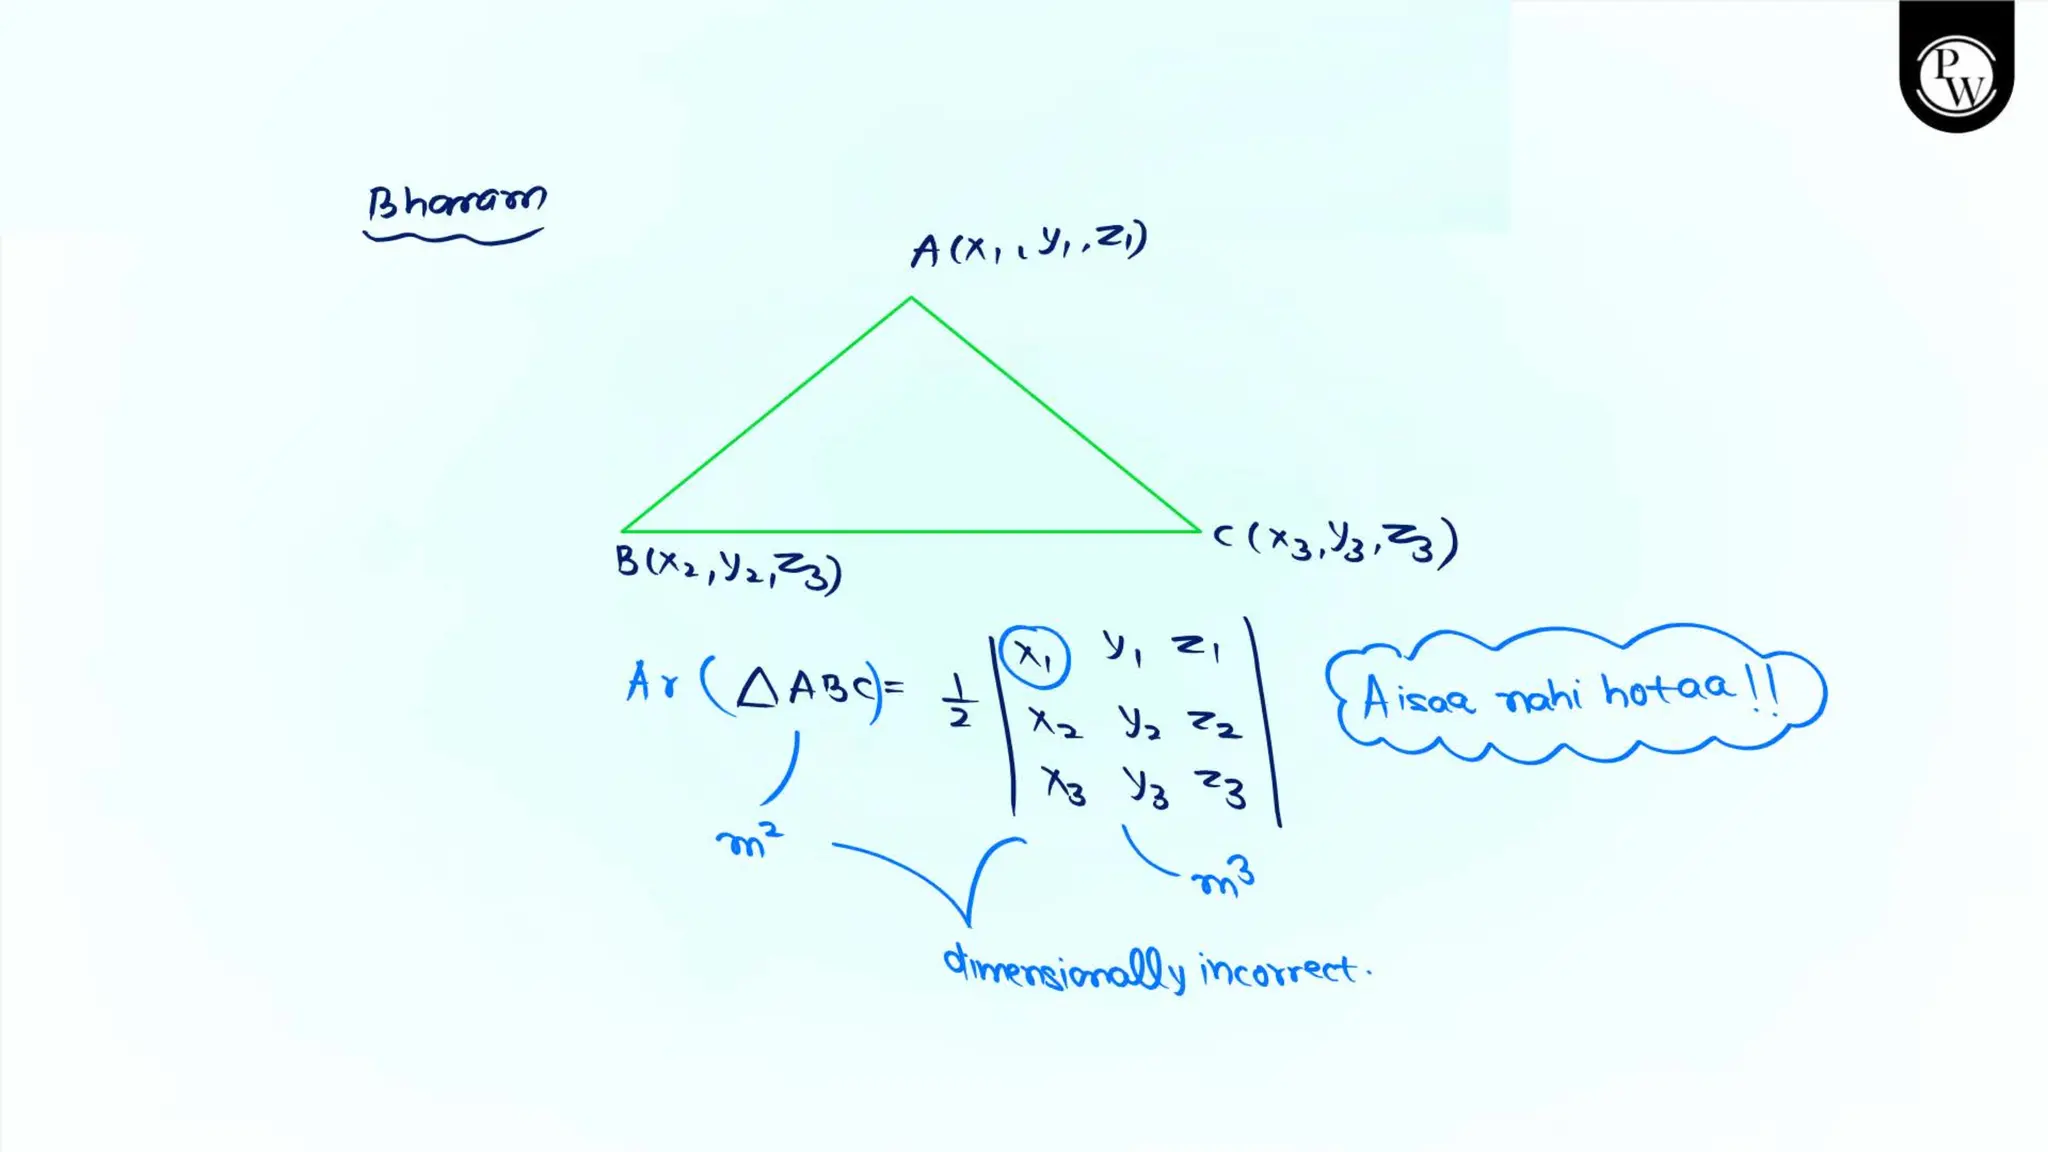 PW
Bhamam
A(x₁, y₁, z₁)
B(x₂, y₂, z₃)
C(x₃, y₃, z₃)
Ar(△ABC) = 1/2 | x₁ y₁ z₁ |
| x₂ y₂ z₂ |
| x₃ y₃ z₃ |
Aisaa nahi hotaa!!
m²
m³
dimensionally incorrect.